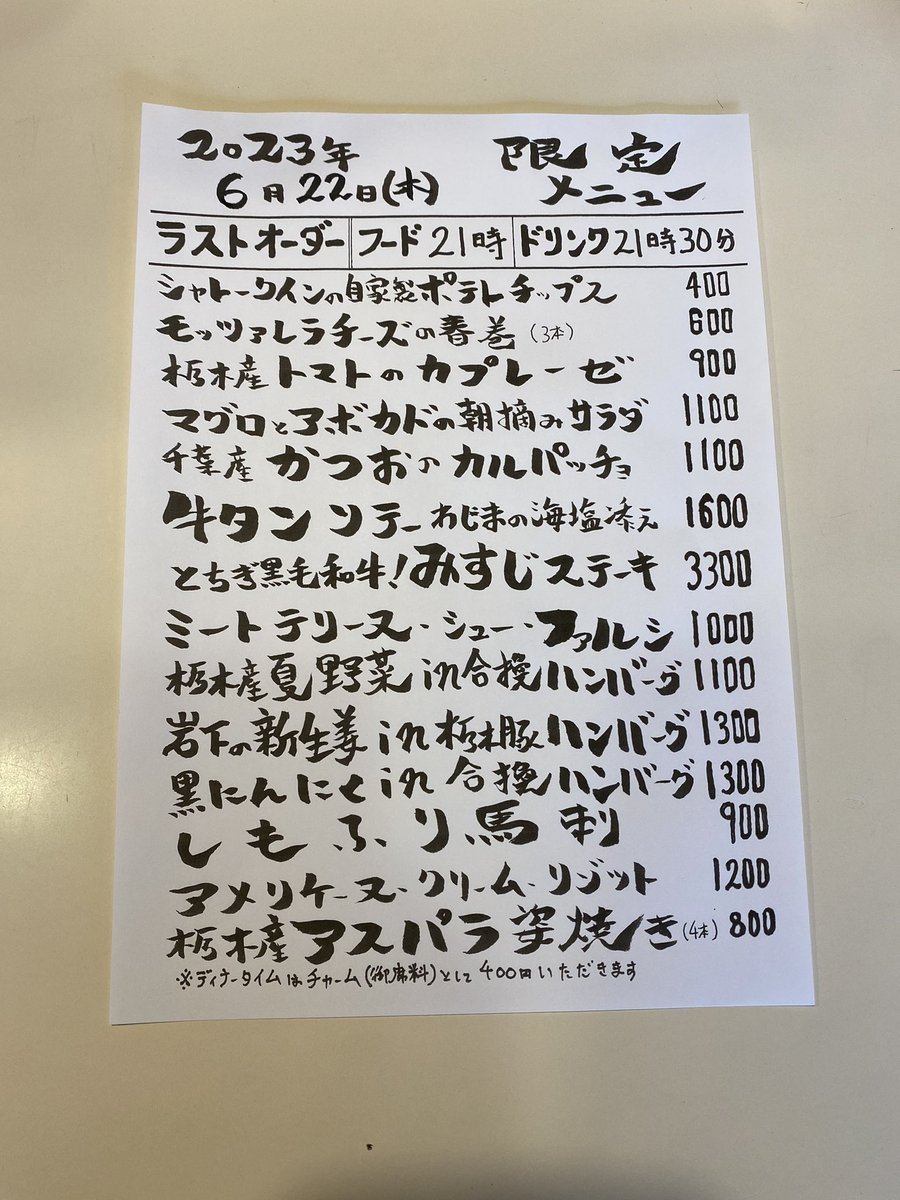 2023年
6月22日(木)
限定
メニュー
ラストオーダー フード21時 ドリンク21時30分
シャトークインの自家製ポテトチップス 400
モッツァレラチーズの春巻(3本) 600
栃木産トマトのカプレーゼ 900
マグロとアボカドの朝摘みサラダ 1100
千葉産かつおのカルパッチョ 1100
牛タンソテーわじまの海塩添え 1600
とちぎ黒毛和牛!みすじステーキ 3300
ミートテリーヌ・シュー・ファルシ 1000
栃木産夏野菜in合挽ハンバーグ 1100
岩下の新生姜in栃木豚ハンバーグ 1300
黒にんにくin合挽ハンバーグ 1300
しもふり馬刺 900
アメリケーヌ・クリーム・リゾット 1200
栃木産アスパラ姿焼き(4本) 800
※ディナータイムはチャーム(御席料)として400円いただきます